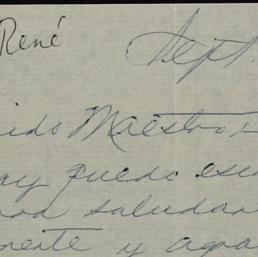 René
Sept
ido Maestro
ay puedo esc
ra saludar
mente y agra